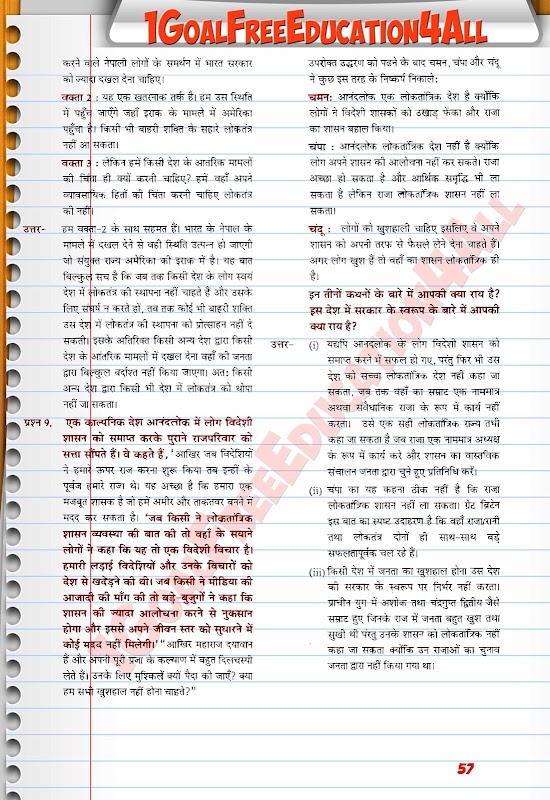 1GoalFreeEducation4All
करने वाले नेपाली लोगों के समर्थन में भारत सरकार
को ज्यादा दखल देना चाहिए।
वक्ता 2 : यह एक खतरनाक तर्क है। हम उस स्थिति
में पहुँच जाएँगे जहाँ इराक के मामले में अमेरिका
पहुँचा है। किसी भी बाहरी शक्ति के सहारे लोकतंत्र
नहीं आ सकता।
वक्ता 3 : लेकिन हमें किसी देश के आंतरिक मामलों
की चिंता ही क्यों करनी चाहिए? हमें वहाँ अपने
व्यावसायिक हितों की चिंता करनी चाहिए लोकतंत्र
की नहीं।
उत्तर- हम वक्ता-2 के साथ सहमत हैं। भारत के नेपाल के
मामले में दखल देने से वही स्थिति उत्पन्न हो जाएगी
जो संयुक्त राज्य अमेरिका की इराक में है। यह बात
बिल्कुल सच है कि जब तक किसी देश के लोग स्वयं
देश में लोकतंत्र की स्थापना नहीं चाहते हैं और उसके
लिए संघर्ष न करते हों, तब तक कोई भी बाहरी शक्ति
उस देश में लोकतंत्र की स्थापना को प्रोत्साहन नहीं दे
सकती। इसके अतिरिक्त किसी अन्य देश द्वारा किसी
देश के आंतरिक मामलों में दखल देना वहाँ की जनता
द्वारा बिल्कुल बर्दाश्त नहीं किया जाएगा। अत: किसी
अन्य देश द्वारा किसी भी देश में लोकतंत्र को थोपा
नहीं जा सकता।
प्रश्न 9. एक काल्पनिक देश आनंदलोक में लोग विदेशी
शासन को समाप्त करके पुराने राजपरिवार को
सत्ता सौंपते हैं। वे कहते हैं, 'आखिर जब विदेशियों
ने हमारे ऊपर राज करना शुरू किया तब इन्हीं के
पूर्वज हमारे राजा थे। यह अच्छा है कि हमारा एक
मजबूत शासक है जो हमें अमीर और ताकतवर बनने में
मदद कर सकता है। 'जब किसी ने लोकतांत्रिक
शासन व्यवस्था की बात की तो वहाँ के सयाने
लोगों ने कहा कि यह तो एक विदेशी विचार है।
हमारी लड़ाई विदेशियों और उनके विचारों को
देश से खदेड़ने की थी। जब किसी ने मीडिया की
आजादी की माँग की तो बड़े-बुजुर्गों ने कहा कि
शासन की ज्यादा आलोचना करने से नुकसान
होगा और इससे अपने जीवन स्तर को सुधारने में
कोई मदद नहीं मिलेगी।' "आखिर महाराज दयावान
हैं और अपनी पूरी प्रजा के कल्याण में बहुत दिलचस्पी
लेते हैं। उनके लिए मुश्किलें क्यों पैदा की जाएँ? क्या
हम सभी खुशहाल नहीं होना चाहते?"
उपरोक्त उद्धरण को पढने के बाद चमन, चंपा और चंदू
ने कुछ इस तरह के निष्कर्ष निकाले:
चमन: आनंदलोक एक लोकतांत्रिक देश है क्योंकि
लोगों ने विदेशी शासकों को उखाड़ फेंका और राजा
का शासन बहाल किया।
चंपा : आनंदलोक लोकतांत्रिक देश नहीं है क्योंकि
लोग अपने शासन की आलोचना नहीं कर सकते। राजा
अच्छा हो सकता है और आर्थिक समृद्धि भी ला
सकता है लेकिन राजा लोकतांत्रिक शासन नहीं ला
सकता।
चंदू : लोगों को खुशहाली चाहिए इसलिए वे अपने
शासन को अपनी तरफ से फैसले लेने देना चाहते हैं।
अगर लोग खुश हैं तो वहाँ का शासन लोकतांत्रिक ही
है।
इन तीनों कथनों के बारे में आपकी क्या राय है?
इस देश में सरकार के स्वरूप के बारे में आपकी
क्या राय है?
उत्तर- (i) यद्यपि आनंदलोक के लोग विदेशी शासन को
समाप्त करने में सफल हो गए, परंतु फिर भी उस
देश को सच्चा लोकतांत्रिक नहीं कहा जा
सकता, जब तक वहाँ का सम्राट एक नाममात्र
अथवा संवैधानिक राजा के रूप में कार्य नहीं
करता। उसे एक सही लोकतांत्रिक राज्य तभी
कहा जा सकता है जब राजा एक नाममात्र अध्यक्ष
के रूप में कार्य करे और शासन का वास्तविक
संचालन जनता द्वारा चुने हुए प्रतिनिधि करें।
(ii) चंपा का यह कहना ठीक नहीं है कि राजा
लोकतांत्रिक शासन नहीं ला सकता। ग्रेट ब्रिटेन
इस बात का स्पष्ट उदाहरण है कि वहाँ राजा/रानी
तथा लोकतंत्र दोनों ही साथ-साथ बड़े
सफलतापूर्वक चल रहे हैं।
(iii) किसी देश में जनता का खुशहाल होना उस देश
की सरकार के स्वरूप पर निर्भर नहीं करता।
प्राचीन युग में अशोक तथा चंद्रगुप्त द्वितीय जैसे
सम्राट हुए जिनके राज में जनता बहुत खुश तथा
सुखी थी परंतु उनके शासन को लोकतांत्रिक नहीं
कहा जा सकता क्योंकि उन राजाओं का चुनाव
जनता द्वारा नहीं किया गया था।
1GoalFreeEducation4All
57